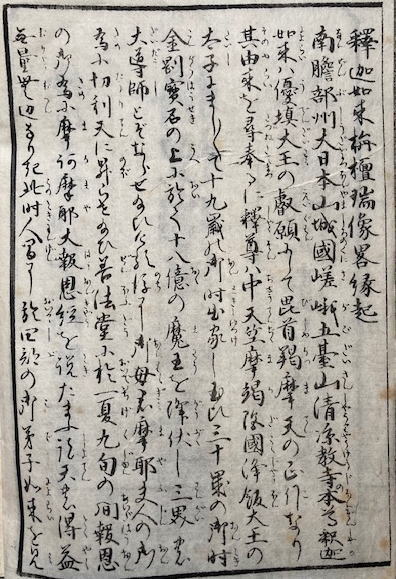 釋迦如来栴檀瑞像畧縁起
南贍部州大日本山城國嵯峨五臺山清凉教寺本尊釈迦
如来ハ優填大王の叡願にして毘首羯摩天の正作なり
其由来を尋奉るに釋尊ハ中天竺摩竭陀國浄飯大王の
太子にましまして十九歳の御時出家し玉ひ三十歳の御時
金剛寶石の上に於て十八億の魔王を降伏し三界の
大導師とぞならせ給ひたり御母君摩耶夫人の御
為に忉利天に昇らせ給ひ善法堂に於一夏九旬の間報恩
の御為に摩訶摩耶大報恩経を説たまふ諸天の得益
無量無邊なり此時人間に於四部の御弟子如来を